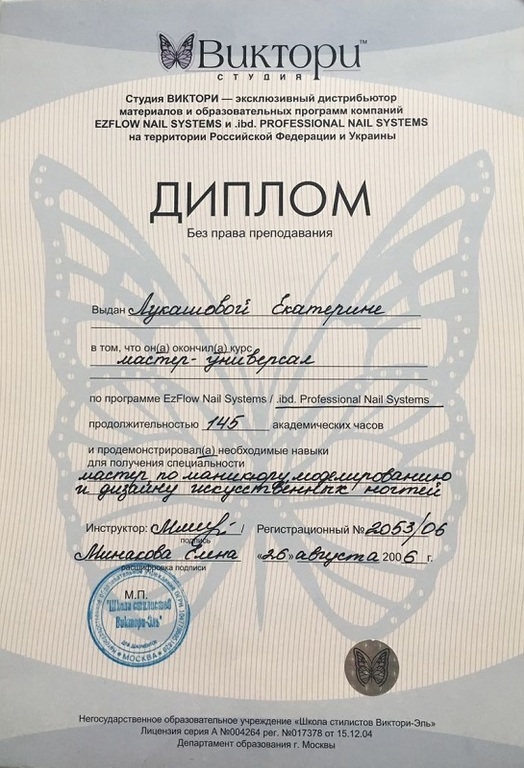 Виктори™
СТУДИЯ
Студия ВИКТОРИ — эксклюзивный дистрибьютор
материалов и образовательных программ компаний
EZFLOW NAIL SYSTEMS и .ibd. PROFESSIONAL NAIL SYSTEMS
на территории Российской Федерации и Украины
ДИПЛОМ
Без права преподавания
Выдан Лукашовой Екатерине
в том, что он(а) окончил(а) курс
мастер-универсал
по программе EzFlow Nail Systems / .ibd. Professional Nail Systems
продолжительностью 145 академических часов
и продемонстрировал(а) необходимые навыки
для получения специальности
мастер по маникюру, моделированию
и дизайну искусственных ногтей
Инструктор: / Регистрационный № 2053/06
подпись
Минакова Елена «26» августа 2006 г.
расшифровка подписи
М.П.
"Школа стилистов
Виктори-Эль"
для документов
МОСКВА
Негосударственное образовательное учреждение «Школа стилистов Виктори-Эль»
Лицензия серия А №004264 рег. №017378 от 15.12.04
Департамент образования г. Москвы